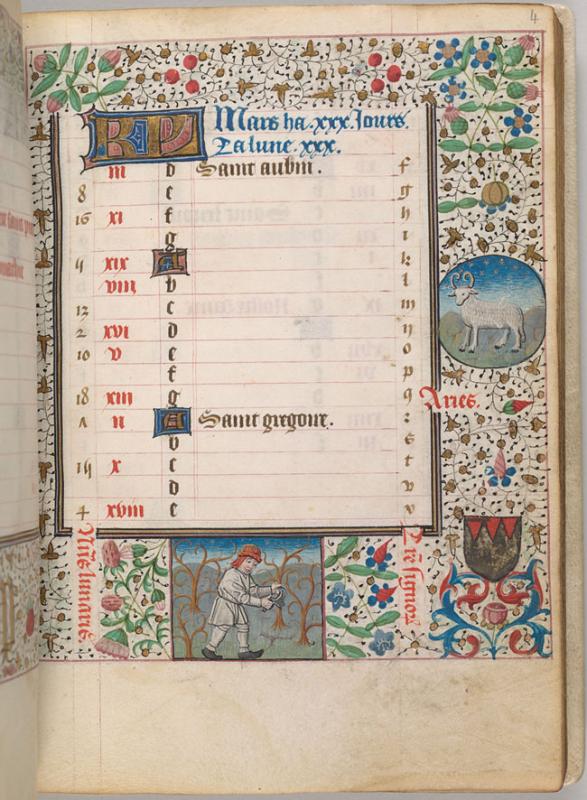 4
KL Mars ha .xxx. Jours.
La lune .xxx.
iii d Saint aubin . f
8 e g
16 xi f h
g i
5 xix A k
viii b l
13 c m
2 xvi d n
10 v e o
f p
18 xiii g q
ii A Saint gregoire. r
b s
15 x c t
d v
4 xviii e v
Aries.
lunaris